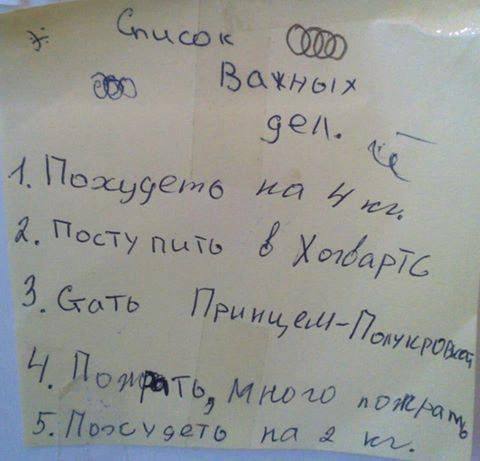 Список
Важных
дел.
1. Похудеть на 4 кг.
2. Поступить в Хогвартс
3. Стать Принцем-Полукровкой
4. Пожрать, много пожрать
5. Похудеть на 2 кг.